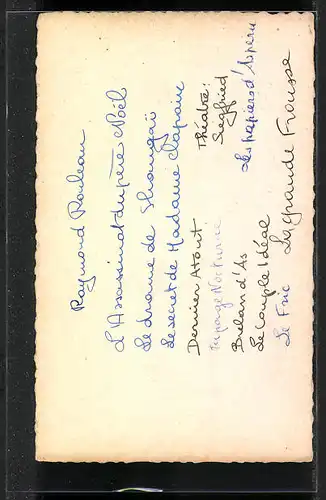 Raymond Rouleau
L'Assassinat du père Noël
Le drame de Shangaï
Le secret de Madame Clapain
Dernier Atout
Tapage Nocturne
Brelan d'As
Le Couple Idéal
Le Fric
La grande Frousse
Théâtre:
Siegfried
Les papiers d'Aspern